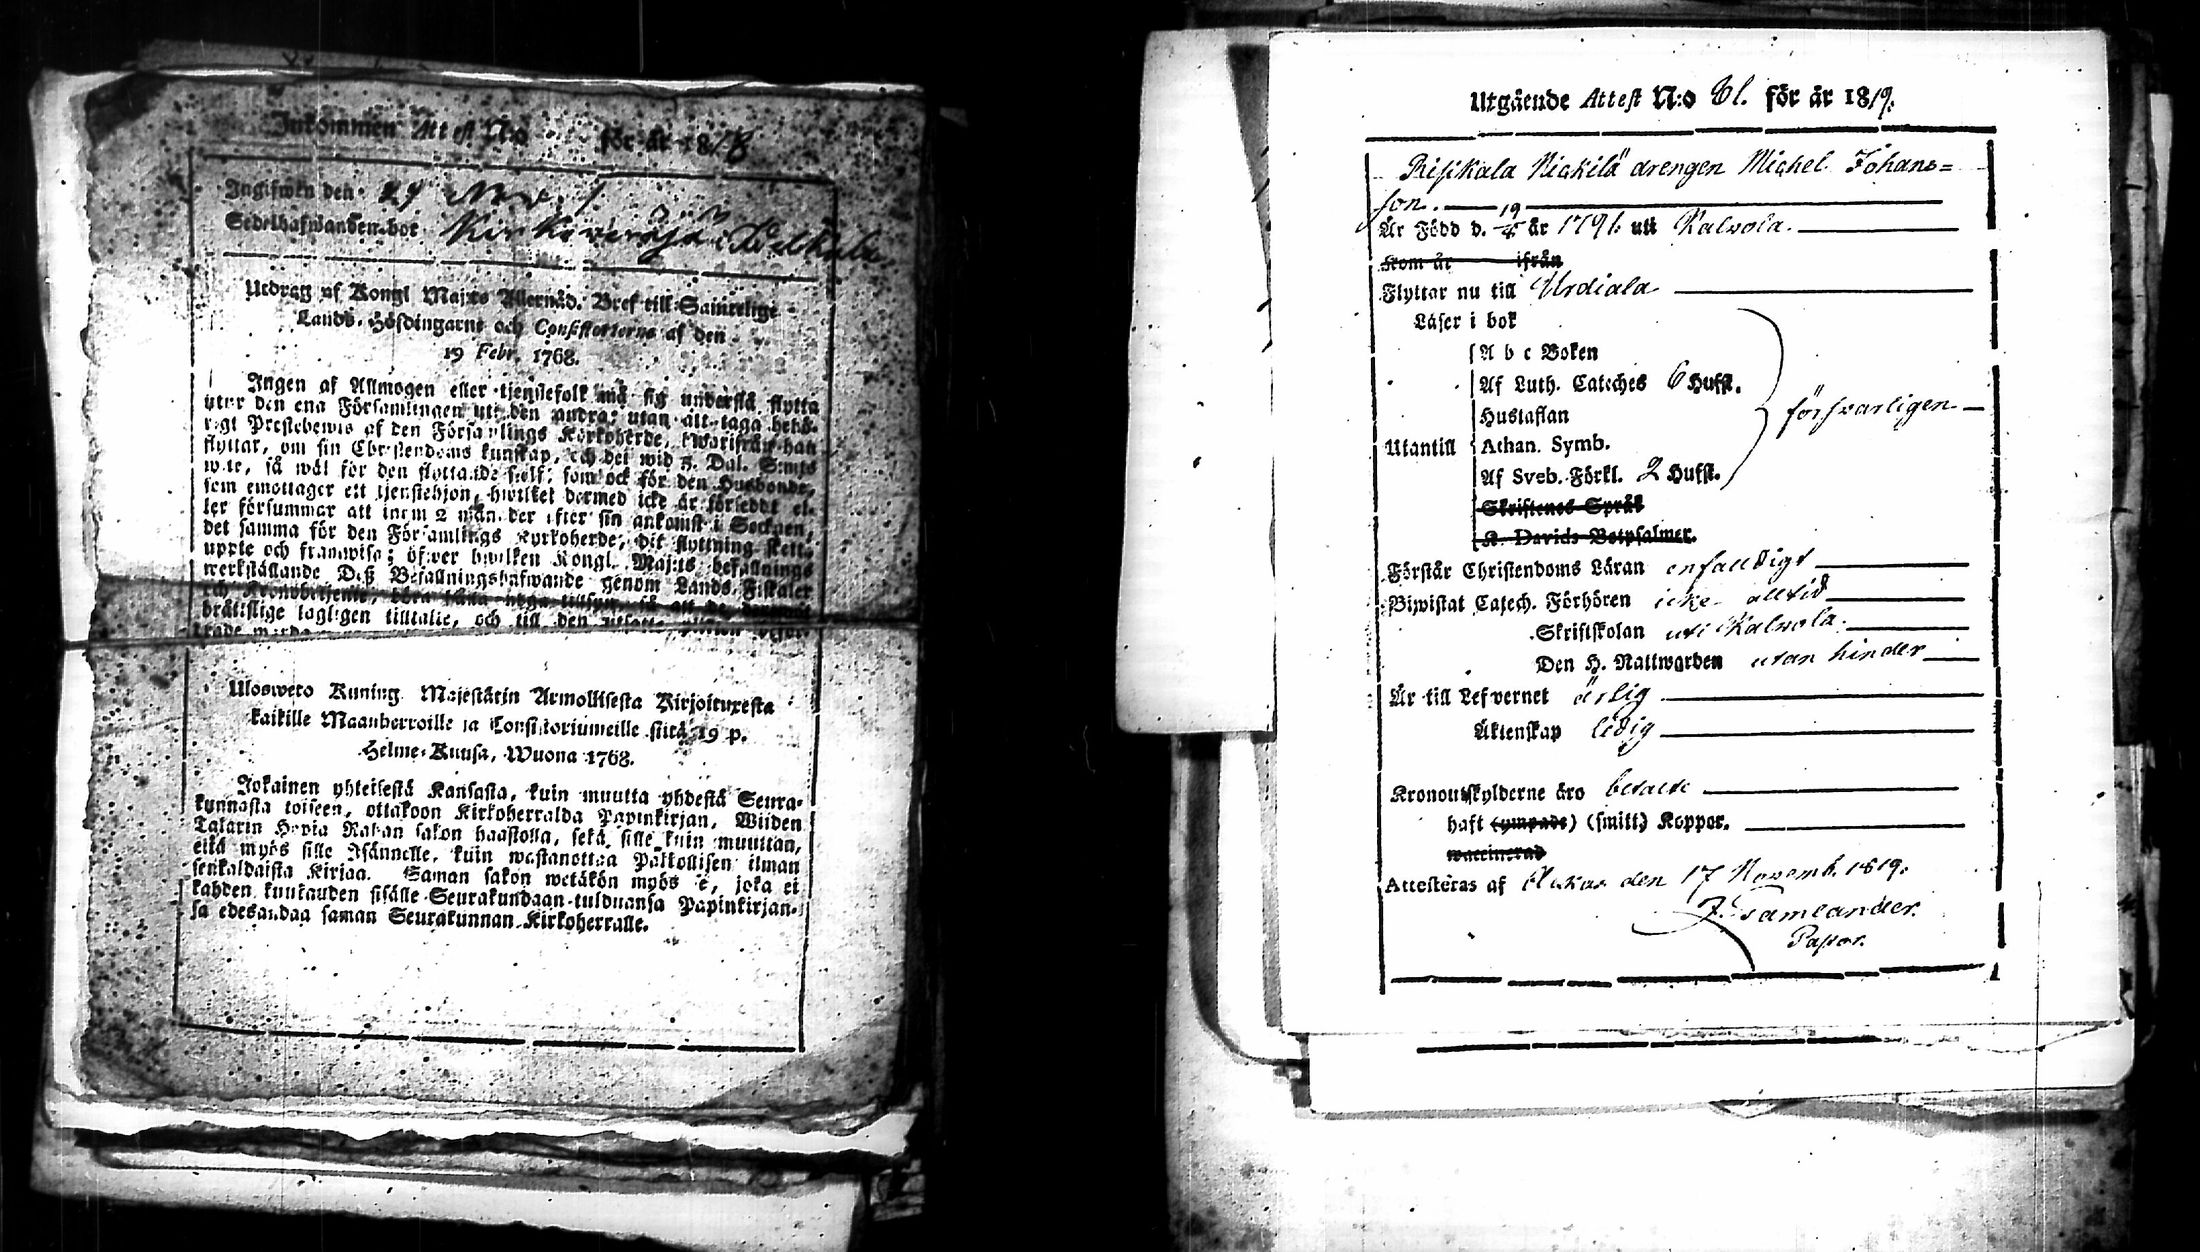 Inkommen Attest N:o för år 1818
Ingifwen den 29 Nov.
Sedelhafwanden bor Kirkovieraja
Utdrag af Kongl Maj:ts Allernåd. Bref till Samtelige
Lands-Höfdingarne och Consistorierne af den
19 Febr. 1768.
Ingen af Allmogen eller tjenstefolk må sig understå flytta
utur den ena Församlingen uti den andra, utan att taga behö-
rigt Prestebewis af den Församlings Kyrkoherde, hwarifrån han
flyttar, om sin Christendoms kunskap, och det wid 5. Dal. S:mts
wite, så wäl för den flyttande sielf, som ock för den Husbonde,
som emottager ett tjenstehjon, hwilket dermed icke är försedt el-
ler försummar att inom 2 mån. der efter sin ankomst i Socknen,
det samma för den Församlings Kyrkoherde, dit flyttning skett,
uppte och framwisa; öfwer hwilken Kongl. Maj:ts befallnings
werkställande Deß Befallningshafwande genom Lands-Fiskaler
och Kronobetjente,
brättslige lagligen tilltalte, och till den
Ulosweto Kuning. Majestätin Armollisesta Kirjoituxesta
kaikille Maanherroille ja Consistoriumeille siitä 19 p.
Helme-Kuusa, Wuona 1768.
Jokainen yhteisestä Kansasta, kuin muutta yhdestä Seura-
kunnasta toiseen, ottakoon Kirkoherralda Papinkirjan, Wiiden
Talarin Hopia Rahan sakon haastolla, sekä sille kuin muuttan,
että myös sille Isännelle, kuin wastanottaa Palkollisen ilman
senkaldaista Kirjaa. Saman sakon wetäkön myös se, joka ei
kahden kuukauden sisälle Seurakundaan tulduansa Papinkirjan-
sa edesandaa saman Seurakunnan Kirkoherralle.
Utgående Attest N:o 61. för år 1819.
Risikala Nickilä drengen Michel Johans=
son.
Är Född d. 19 år 1791. uti Kalvola.
Kom år ifrån
Flyttar nu till Urdiala
Läser i bok
A b c Boken
Af Luth. Cateches 6 Hufst.
Hustaflan
försvarligen
Utantill Athan. Symb.
Af Sveb. Förkl. 2 Hufst.
Skriftenes Språk
K. Davids Botpsalmer.
Förstår Christendoms Läran enfalldigt
Biwistat Catech. Förhören icke alltid
Skriftskolan uti Kalvola.
Den H. Nattwarden utan hinder
Är till Lefvernet ärlig
Äktenskap ledig
Kronoutskylderne äro betalte
haft (ympade) (smitt) Koppor.
waccinerad
Attesteras af Akas den 17 Novemb. 1819.
F. Tamlander.
Pastor.